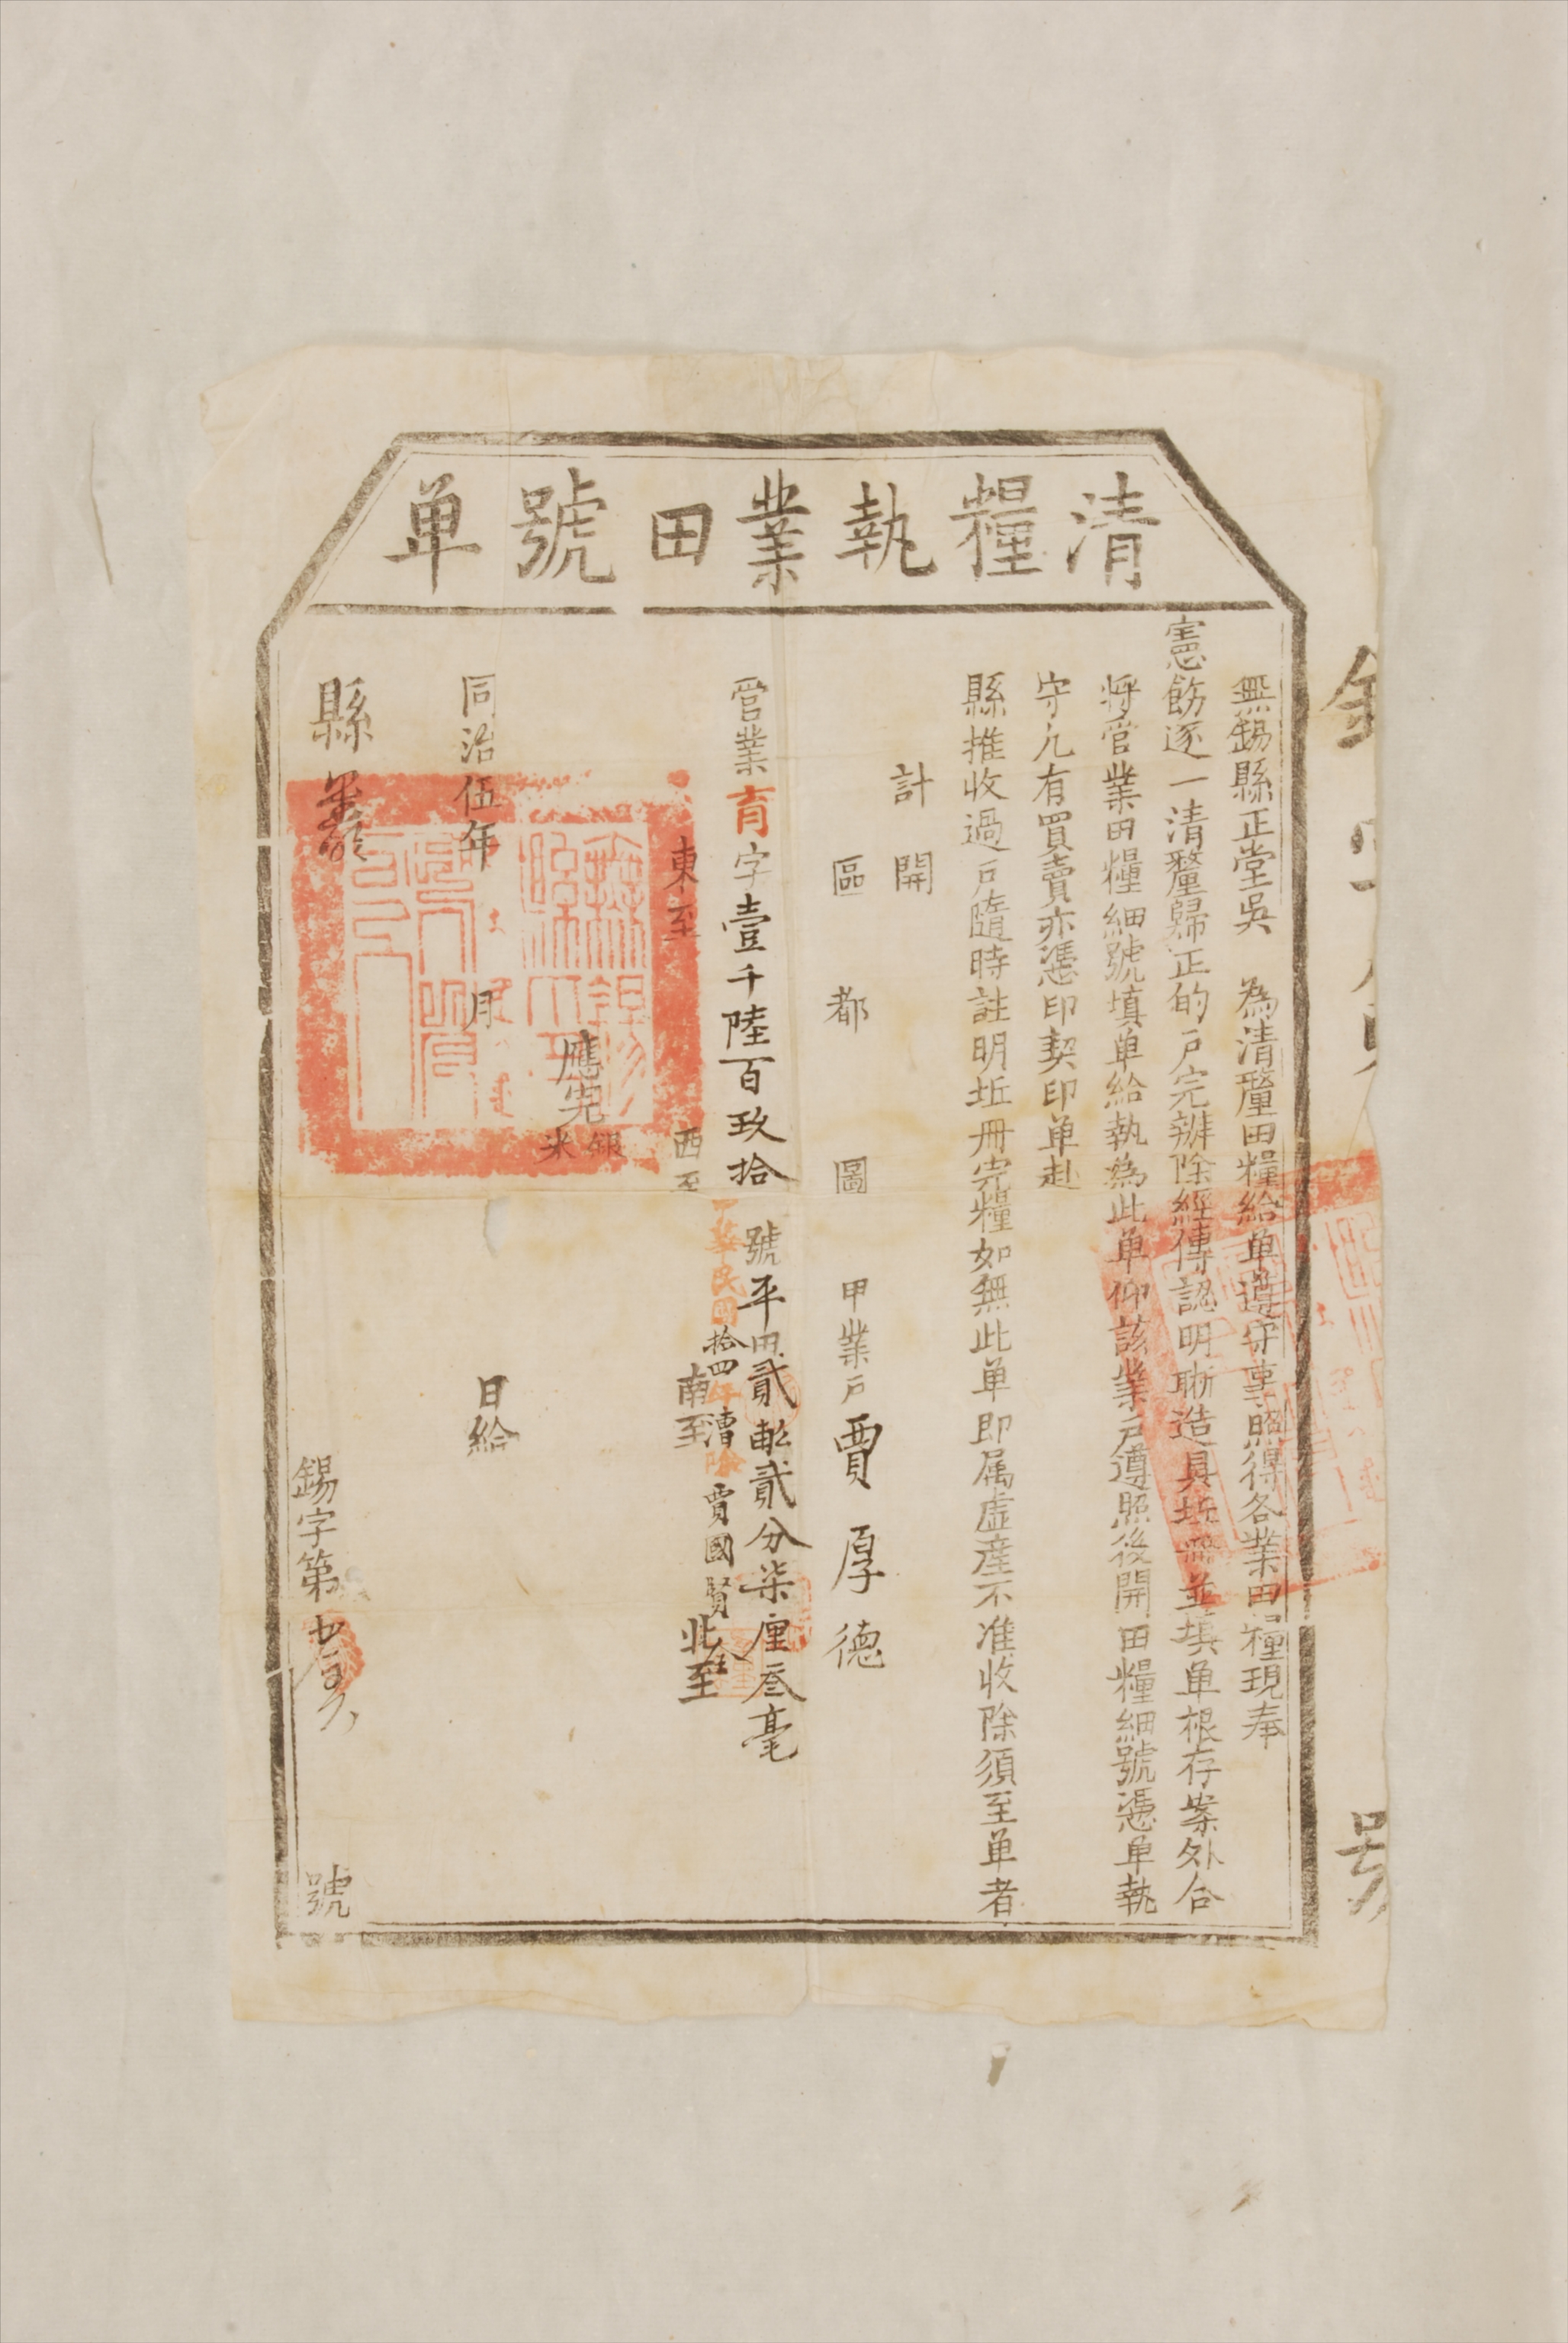 清糧執業田號單
無錫縣正堂吳 為清釐田糧給單遵守事照得各業田糧現奉
憲飭逐一清釐歸正的戶完辦除經傳認明晰造具坵冊並填單根存案外合
將管業田糧細號填單給執為此单仰該業戶遵照後開田糧細號憑单執
守凢有買賣亦憑印契印单赴
縣推收過戶隨時註明坵冊完糧如無此单即属虛產不准收除須至单者
計開
區 都 圖 甲業戶賈厚德
管業育字壹千陸百玖拾 號平田貳畝貳分柒厘叁毫
中華民國拾四年漕除賈國賢仝
東至 西至 南至 北至
應完銀米
同治伍年 月 日給
縣
錫字第 號